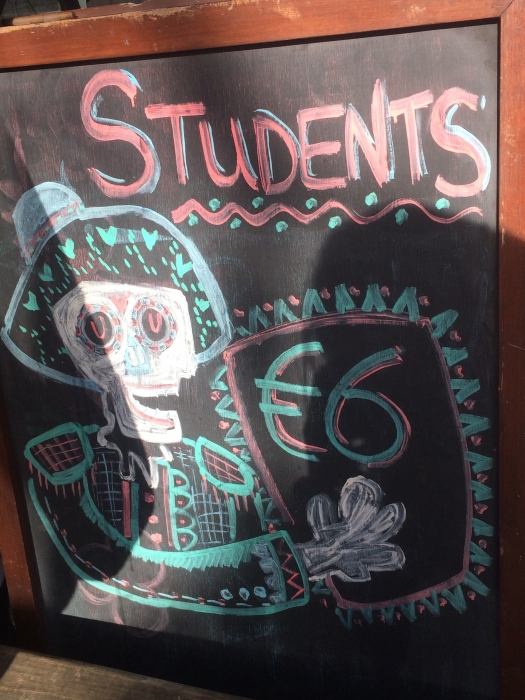 STUDENTS
€6